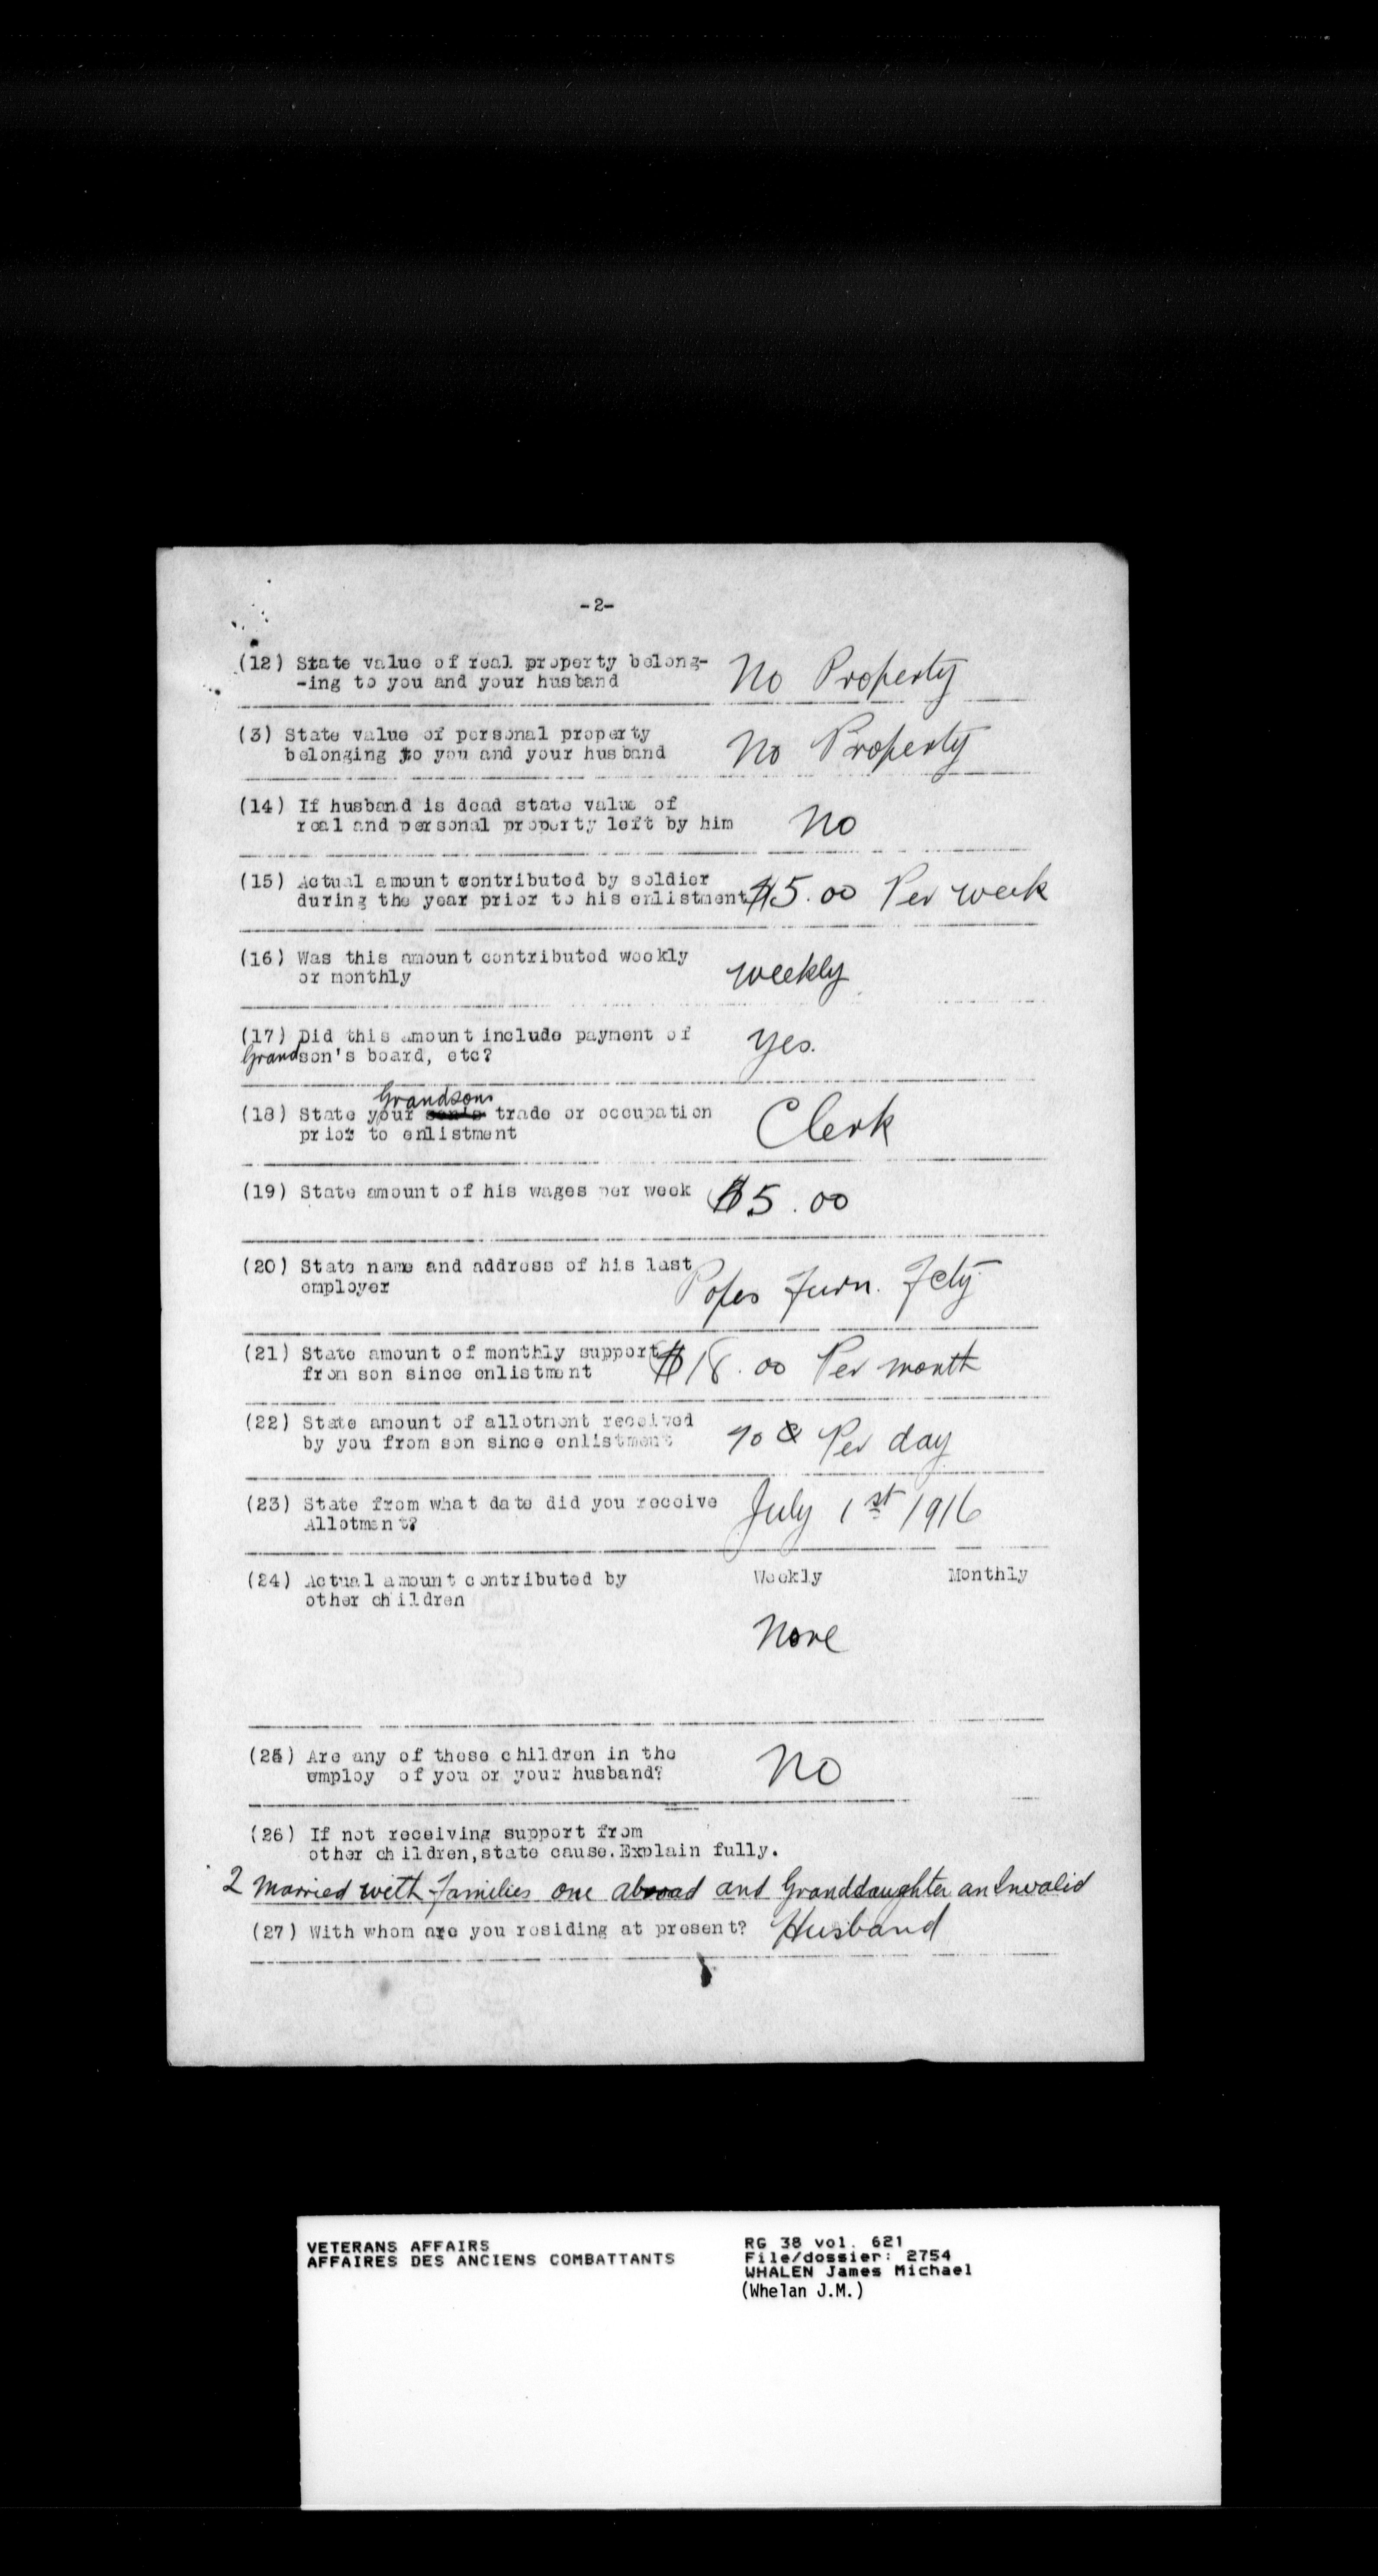 -2-
(12) State value of real property belong-
-ing to you and your husband
No Property
(3) State value of personal property
belonging to you and your husband
No Property
(14) If husband is dead state value of
real and personal property left by him
No
(15) Actual amount contributed by soldier
during the year prior to his enlistment
$5.00 Per week
(16) Was this amount contributed weekly
or monthly
weekly
(17) Did this amount include payment of
Grandson's board, etc?
Yes.
Grandsons
(18) State your son's trade or occupation
prior to enlistment
Clerk
(19) State amount of his wages per week
$5.00
(20) State name and address of his last
employer
Popes Furn. Fcty
(21) State amount of monthly support
from son since enlistment
$18.00 Per month
(22) State amount of allotment received
by you from son since enlistment
70 c Per day
(23) State from what date did you receive
Allotment?
July 1st 1916
(24) Actual amount contributed by
other children
Weekly Monthly
None
(25) Are any of these children in the
employ of you or your husband?
No
(26) If not receiving support from
other children,state cause.Explain fully.
2 married with families one abroad and Granddaughter an Invalid
(27) With whom are you residing at present?
Husband
VETERANS AFFAIRS
AFFAIRES DES ANCIENS COMBATTANTS
RG 38 vol. 621
File/dossier: 2754
WHALEN James Michael
(Whelan J.M.)